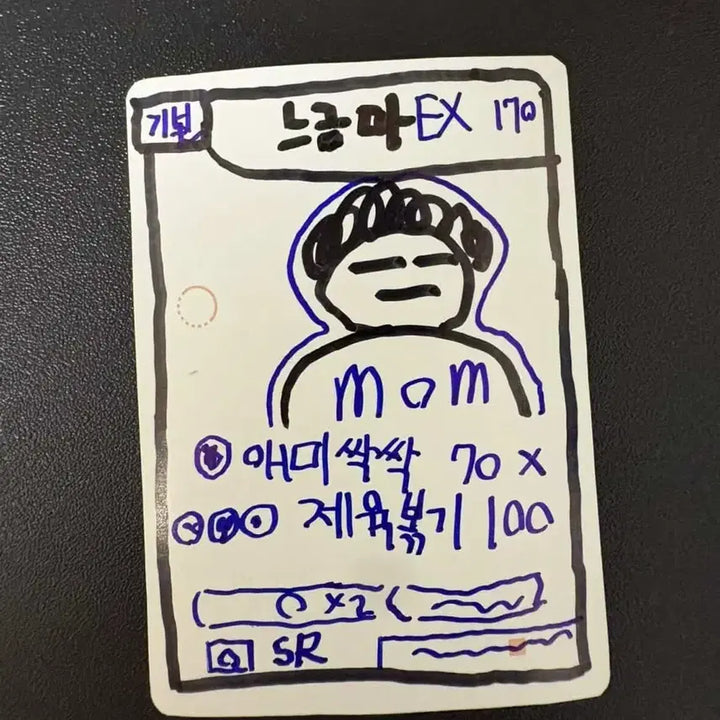 기본 느금마 EX 170
mom
애미싹싹 70 x
제육볶기 100
x2
SR